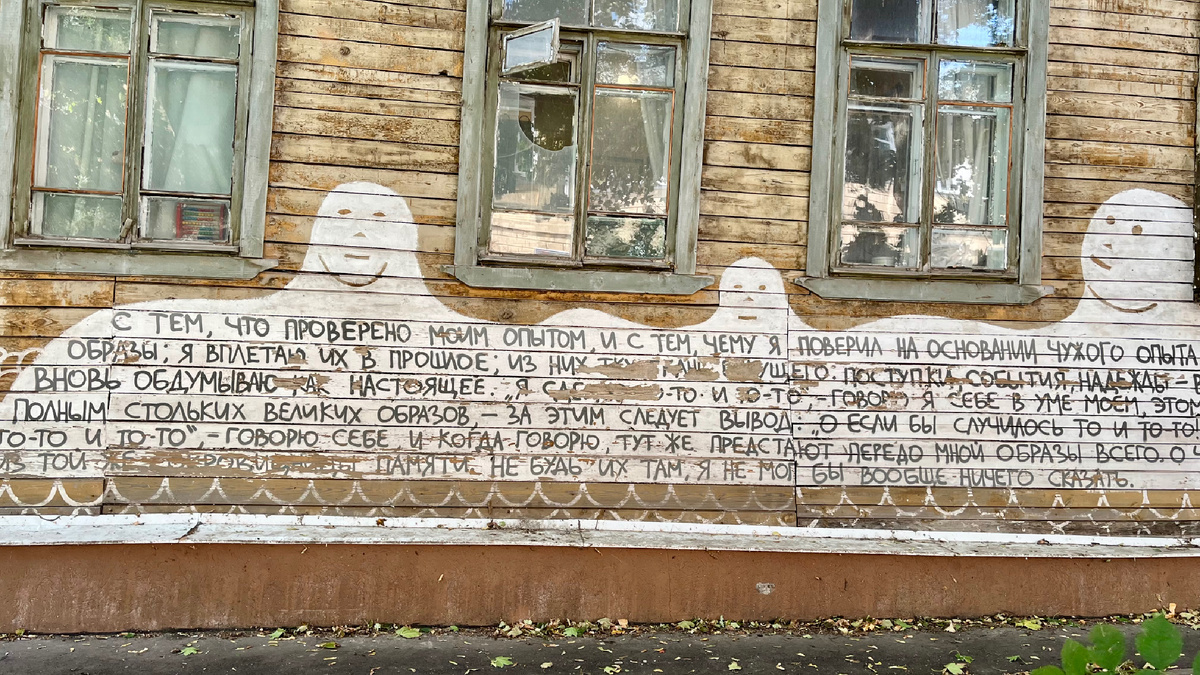 С ТЕМ, ЧТО ПРОВЕРЕНО МОИМ ОПЫТОМ, И С ТЕМ, ЧЕМУ Я ПОВЕРИЛ НА ОСНОВАНИИ ЧУЖОГО ОПЫТА
ОБРАЗЫ; Я ВПЛЕТАЮ ИХ В ПРОШЛОЕ; ИЗ НИХ ПОСТУПКИ, СОБЫТИЯ, НАДЕЖДЫ –
ВНОВЬ ОБДУМЫВАЮ НАСТОЯЩЕЕ. „Я ТО И ТО-ТО", – ГОВОРЮ Я СЕБЕ В УМЕ МОЕМ, ЭТОМ
ПОЛНЫМ СТОЛЬКИХ ВЕЛИКИХ ОБРАЗОВ, – ЗА ЭТИМ СЛЕДУЕТ ВЫВОД: „О ЕСЛИ БЫ СЛУЧИЛОСЬ ТО И ТО-ТО!
ТО-ТО И ТО-ТО", – ГОВОРЮ СЕБЕ И КОГДА ГОВОРЮ, ТУТ ЖЕ ПРЕДСТАЮТ ПЕРЕДО МНОЙ ОБРАЗЫ ВСЕГО. О
ИЗ ТОЙ ЖЕ ПАМЯТИ. НЕ БУДЬ ИХ ТАМ, Я НЕ МОГ БЫ ВООБЩЕ НИЧЕГО СКАЗАТЬ.